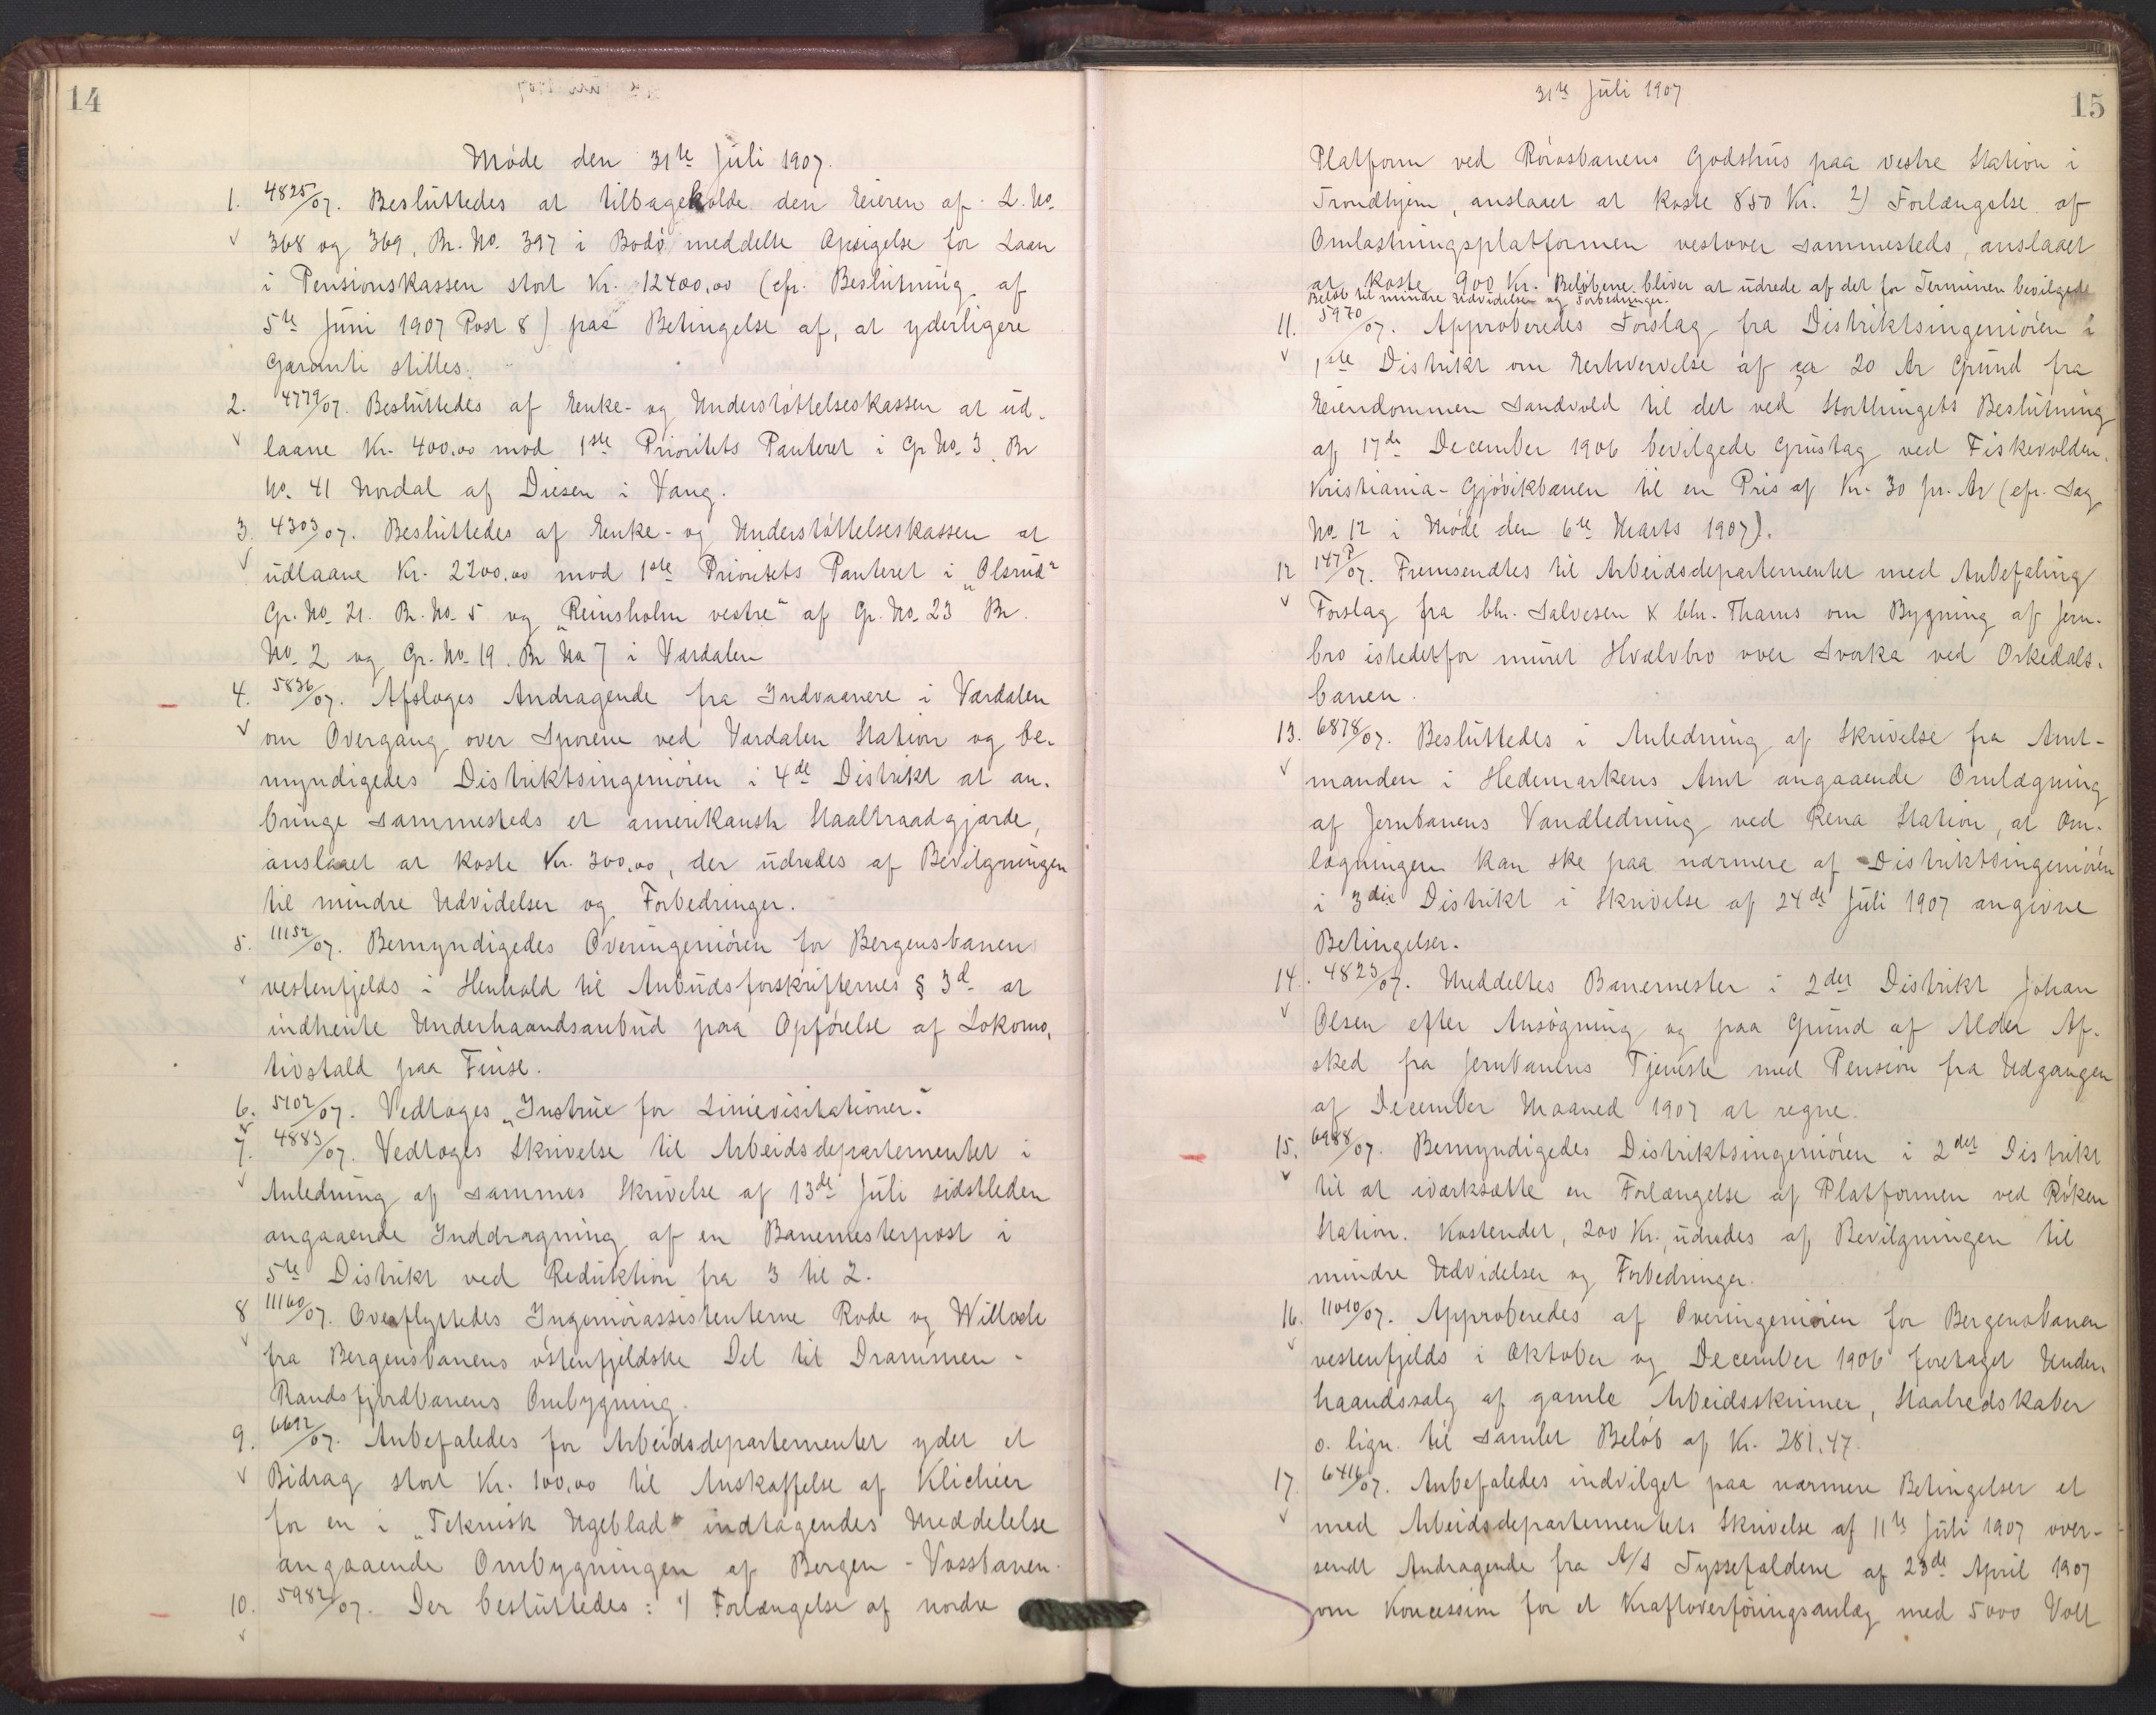 14
Møde den 31te Juli 1907.
1. 4825/07. Besluttedes at tilbagekalde den Eieren af L. No.
368 og 369, Br. No. 397 i Bodø meddelte Opsigelse for Laan
i Pensionskassen stort Kr. 12400,00 (cfr. Beslutning af
5te Juni 1907 Post 8) paa Betingelse af, at yderligere
Garanti stilles.
2. 4779/07. Besluttedes af Enke- og Understøttelseskassen at ud-
laane Kr. 400,00 mod 1ste Prioritets Panteret i Gr. No. 3, Br
No. 41 Nordal af Diesen i Vang.
3. 4303/07. Besluttedes af Enke- og Understøttelseskassen at
udlaane Kr. 2200,00 mod 1ste Prioritets Panteret i „Olsrud"
Gr. No. 21. Br. No. 5 og „Reinsholm vestre" af Gr. No. 23 Br.
No. 2 og Gr. No. 19. Br No 7 i Værdalen
4. 5836/07. Afsloges Andragende fra Indvaanere i Værdalen
om Overgang over Sporene ved Værdalen Station og be-
myndigedes Distriktsingeniøren i 4de Distrikt at an-
bringe sammesteds et amerikansk Staaltraadgjærde,
anslaaet at koste Kr. 300,00, der udredes af Bevilgningen
til mindre Udvidelser og Forbedringer.
5. 11152/07. Bemyndigedes Overingeniøren for Bergensbanen
vestenfjelds i Henhold til Anbudsforskrifternes § 3d at
indhente Underhaandsanbud paa Opførelse af Lokomo-
tivstald paa Finse.
6. 5102/07. Vedtoges „Instrux for Linievisitationer."
7. 4883/07. Vedtoges Skrivelse til Arbeidsdepartementet i
Anledning af sammes Skrivelse af 13de Juli sidstleden
angaaende Inddragning af en Banemesterpost i
5te Distrikt ved Reduktion fra 3 til 2.
8 11160/07. Overflyttedes Ingeniørassistenterne Rode og Willoch
fra Bergensbanens østenfjeldske Del til Drammen -
Randsfjordbanens Ombygning.
9. 6692/07. Anbefaledes for Arbeidsdepartementet ydet et
Bidrag stort Kr. 100,00 til Anskaffelse af Klichéer
for en i „Teknisk Ugeblad" indtagendes Meddelelse
angaaende Ombygningen af Bergen - Vossbanen.
10. 5982/07. Der besluttedes: 1) Forlængelse af nordre
31te Juli 1907
15
Platform ved Rørosbanens Godshus paa vestre Station i
Trondhjem, anslaaet at koste 850 Kr. 2) Forlængelse af
Omlastningsplatformen vestover sammesteds, anslaaet
at koste 900 Kr. Beløbene bliver at udrede af det for Terminen bevilgede
Beløb til mindre Udvidelser og Forbedringer.
11. 5970/07. Approberedes Forslag fra Distriktsingeniøren i
1ste Distrikt om Erhvervelse af ca 20 Ar Grund fra
Eiendommen Sandvold til det ved Storthingets Beslutning
af 17de December 1906 bevilgede Grustag ved Fiskevolden,
Kristiania - Gjøvikbanen til en Pris af Kr. 30 pr. Ar (cfr. Sag
No 12 i Møde den 6te Marts 1907).
12 147P/07. Fremsendtes til Arbeidsdepartementet med Anbefaling
Forslag fra hhr. Salvesen & hhr. Thams om Bygning af Jern-
bro istedetfor muret Hvælvbro over Svorka ved Orkedals-
banen.
13. 6878/07. Besluttedes i Anledning af Skrivelse fra Amt-
manden i Hedemarkens Amt angaaende Omlægning
af Jernbanens Vandledning ved Rena Station, at Om-
lægningen kan ske paa nærmere af Distriktsingeniøren
i 3die Distrikt i Skrivelse af 24de Juli 1907 angivne
Betingelser.
14. 4823/07. Meddeltes Banemester i 2det Distrikt Johan
Olsen efter Ansøgning og paa Grund af Alder Af-
sked fra Jernbanens Tjeneste med Pension fra Udgangen
af December Maaned 1907 at regne.
15. 6988/07. Bemyndigedes Distriktsingeniøren i 2det Distrikt
til at iværksætte en Forlængelse af Platformen ved Røken
Station. Kostendet, 200 Kr., udredes af Bevilgningen til
mindre Udvidelser og Forbedringer.
16. 11010/07. Approberedes af Overingeniøren for Bergensbanen
vestenfjelds i Oktober og December 1906 foretaget Under-
haandssalg af gamle Arbeidsskinner, Staalredskaber
o. lign. til samlet Beløb af Kr. 281,47.
17. 6416/07. Anbefaledes indvilget paa nærmere Betingelser et
med Arbeidsdepartementets Skrivelse af 11te Juli 1907 over-
sendt Andragende fra A/S Tyssefaldene af 23de April 1907
om Koncession for et Kraftoverføringsanlæg med 5000 Volt